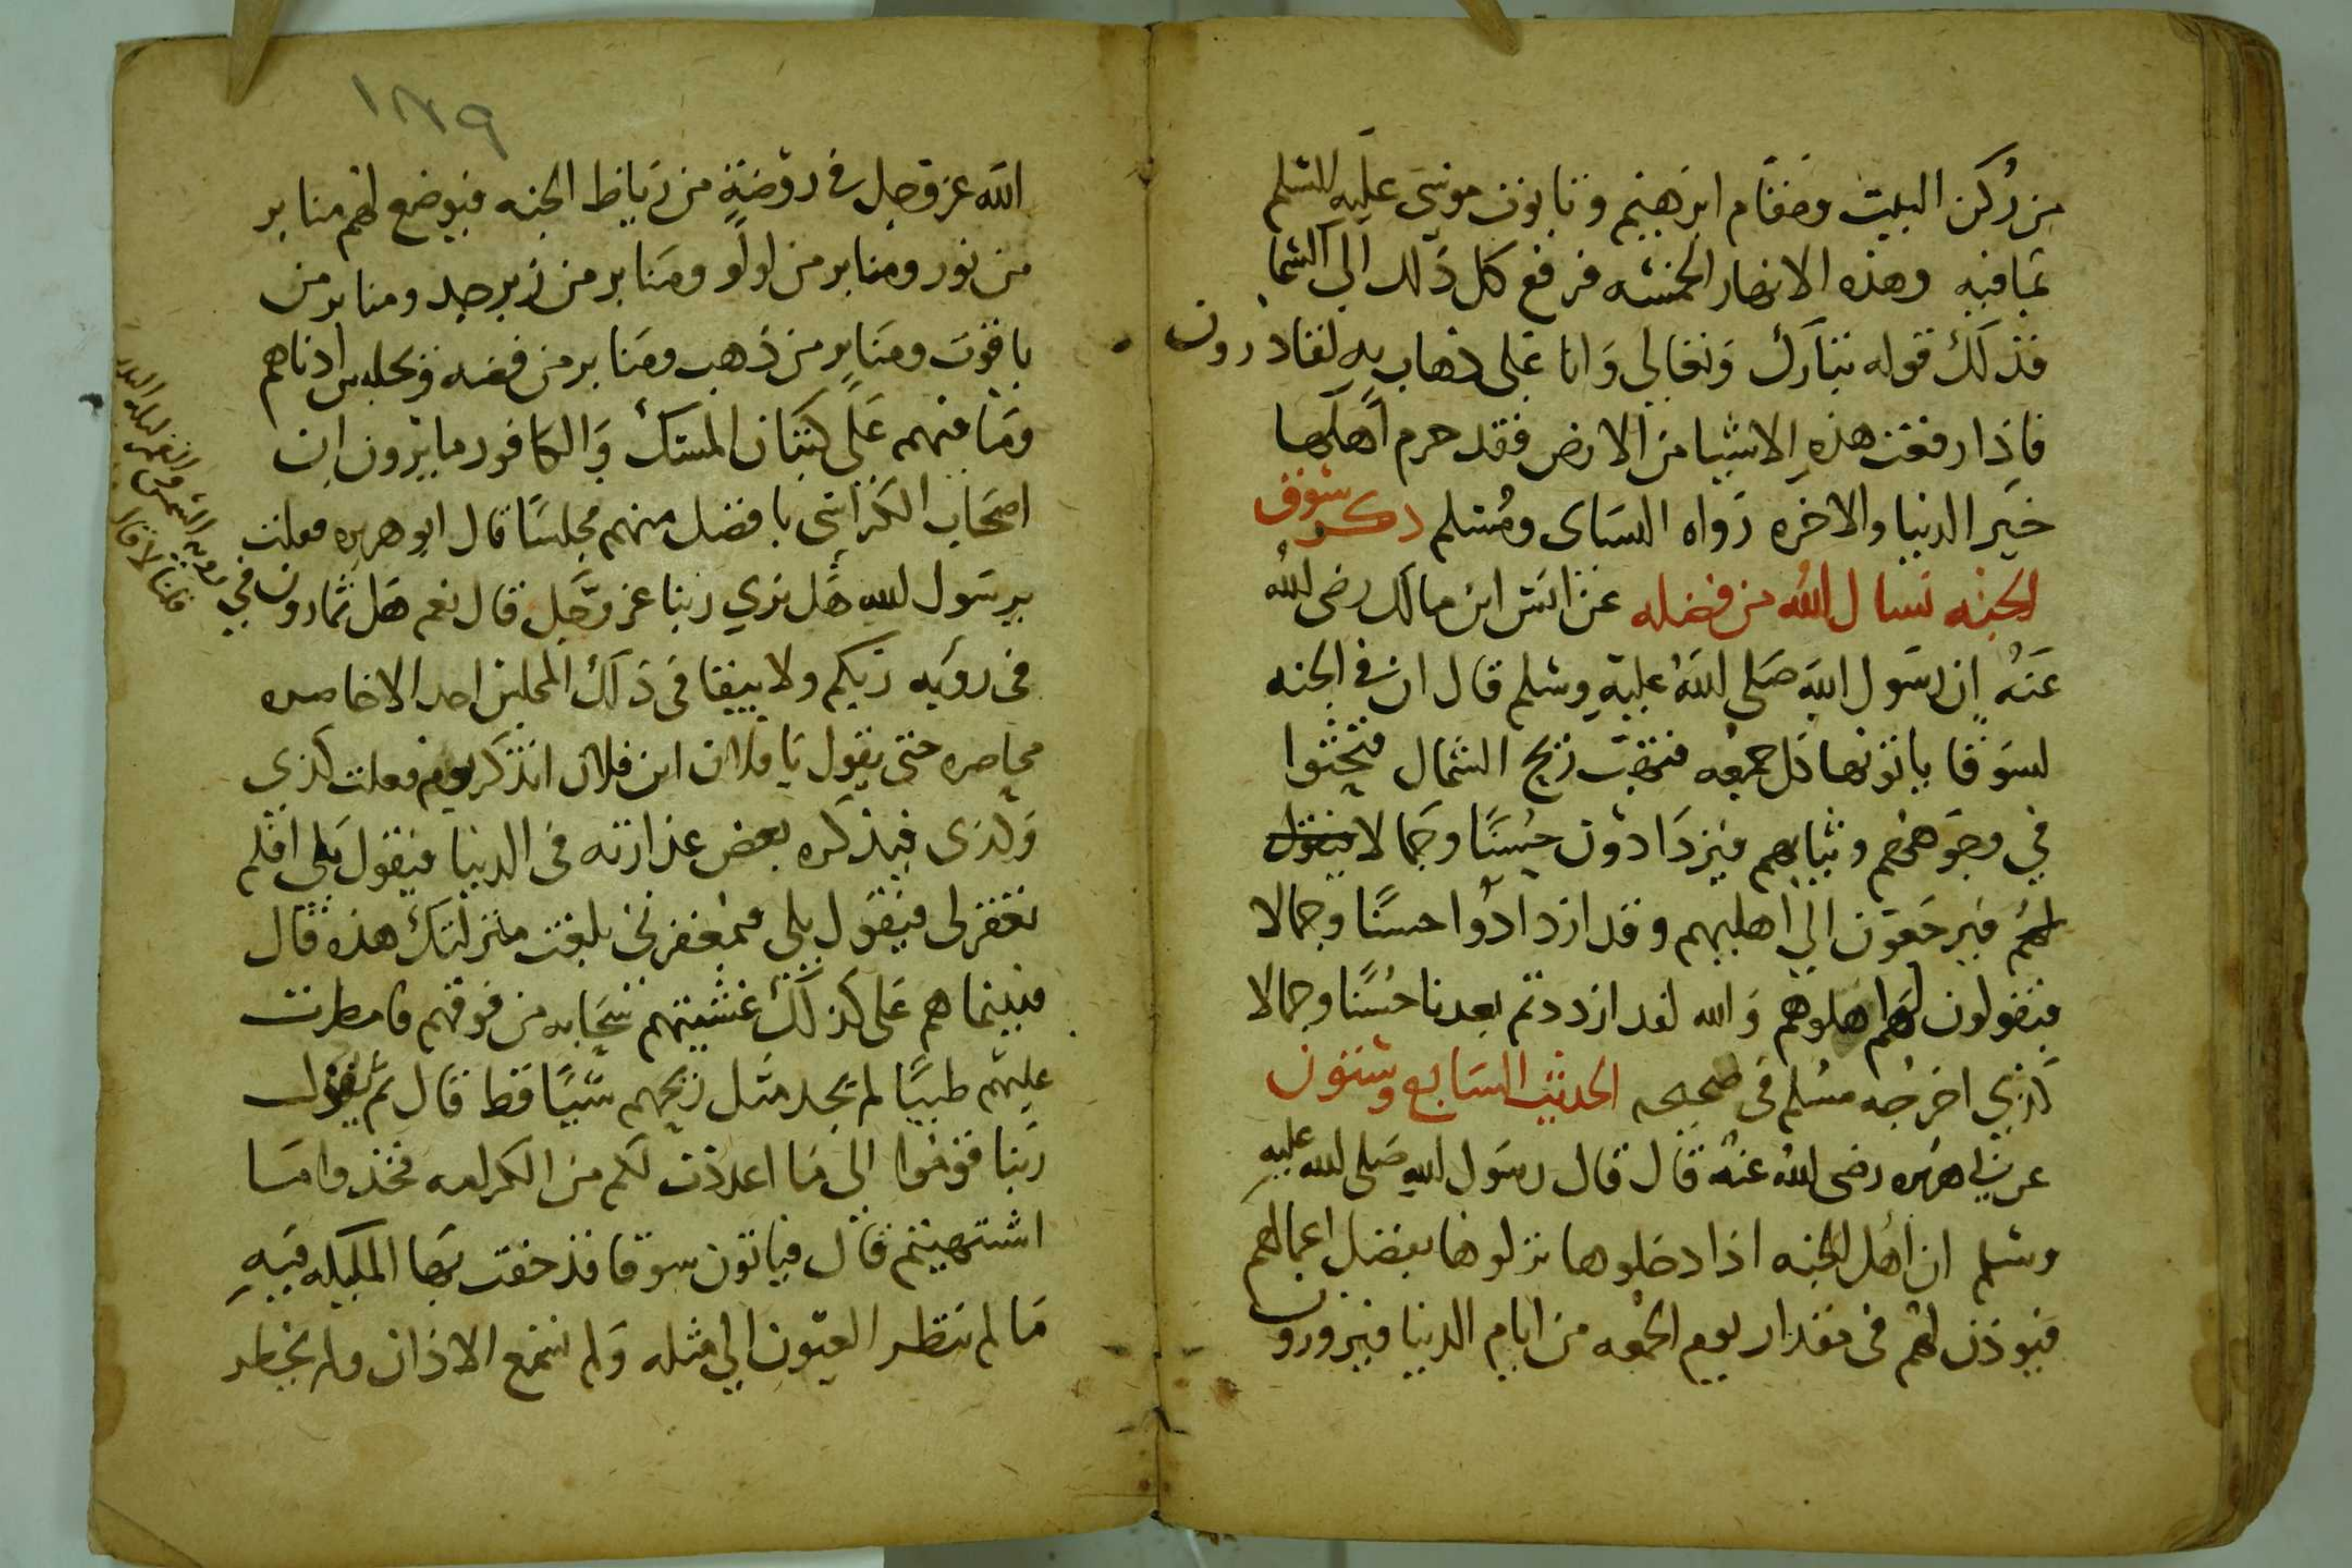 من ركن البيت ومقام ابرهيم وتابوت موسى عليه السلم
بما فيه وهذه الانهار الخمسه فرفع كل ذلك الى السما
فذلك قوله تبارك وتعالى وانا على ذهاب به لقادرون
فاذا رفعت هذه الاشيا من الارض فقد حرم اهلها
خير الدنيا والاخره رواه النساى ومسلم ذكر سوق
الجنه نسال الله من فضله عن انس ابن مالك رضى الله
عنه ان رسول الله صلى الله عليه وسلم قال ان في الجنه
لسوقا ياتونها كل جمعه فتهب ريح الشمال فتحثوا
في وجوههم وثيابهم فيزدادون حسنا وجمالا فيقول
لهم فيرجعون الى اهليهم وقد ازدادوا حسنا وجمالا
فيقولون لهم اهلوهم والله لقد ازددتم بعدنا حسنا وجمالا
كذى اخرجه مسلم في صحيحه الحديث السابع وستون
عن ابي هريره رضى الله عنه قال قال رسول الله صلى الله عليه
وسلم ان اهل الجنه اذا دخلوها نزلوها بفضل اعمالهم
فيوذن لهم في مقدار يوم الجمعه من ايام الدنيا فيزورون
١٨٩
الله عز وجل في روضة من رياظ الجنه فيوضع لهم منابر
من نور ومنابر من لولو ومنابر من زبرجد ومنابر من
ياقوت ومنابر من ذهب ومنابر من فضه ويجلس ادناهم
وما منهم على كتبان المسك والكافور ما يرون ان
اصحاب الكراسى بافضل منهم مجلسا قال ابو هريره فقلت
يرسول الله هل نرى ربنا عز وجل قال نعم هل تمارون في
رويه الشمس والقمر ليله البدر
قلنا لا قال
في رؤيه ربكم ولا يبقا في ذلك المجلس احد الا حاصره
محاصره حتى يقول يا فلان ابن فلان اتذكر يوم فعلت كذى
وكذى فيذكره بعض عذارته في الدنيا فيقول بلى افلم
تغفر لى فيقول بلى فبمغفرتى بلغت منزلتك هذه قال
فبينما هم على كذلك غشيتهم سحابه من فوقهم فامطرت
عليهم طيبا لم تجد مثل ريحهم شيئا قط قال ثم يقول
ربنا قوموا الى ما اعددت لكم من الكرامه فخذوا ما
اشتهيتم قال فياتون سوقا قد حفت بها المليكه فيه
ما لم تنظر العيون الى مثله ولم تسمع الاذان ولم يخطر